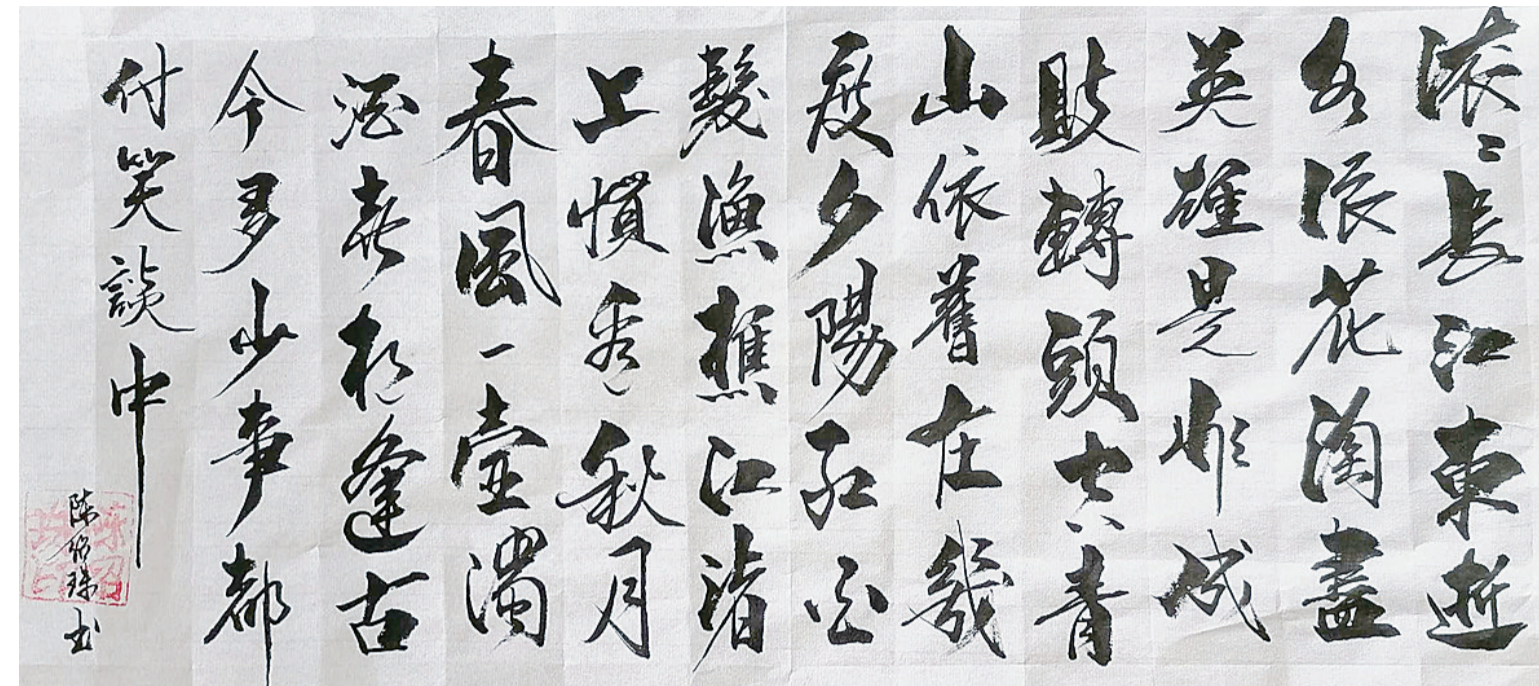 滚〻長江東逝
水浪花淘盡
英雄是非成
敗轉頭空青
山依舊在幾
度夕陽紅白
髮漁樵江渚
上慣看秋月
春風一壺濁
酒喜相逢古
今多少事都
付笑談中
陈绍珠书